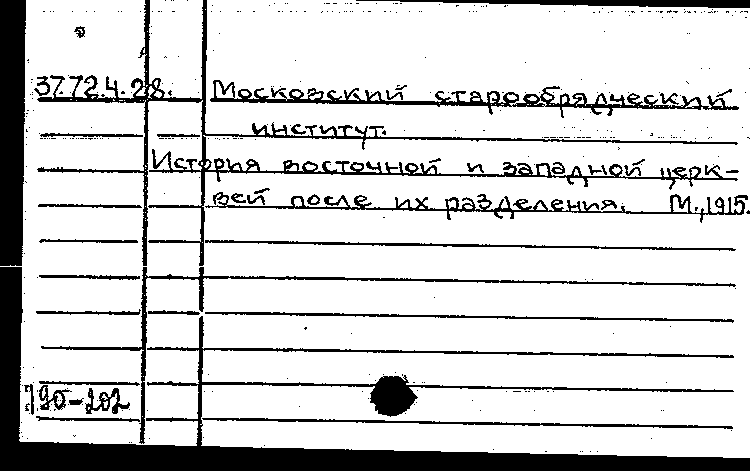 37.72.4.28. Московский старообрядческий
институт.
История восточной и западной церк-
вей после их разделения. М., 1915.
190-202